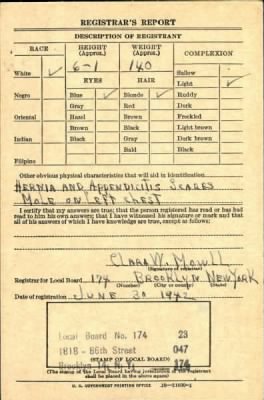 REGISTRAR'S REPORT
DESCRIPTION OF REGISTRANT
RACE HEIGHT (Approx.) WEIGHT (Approx.) COMPLEXION
6-1 140 Sallow
White ✓ EYES HAIR Light ✓
Negro Blue ✓ Blonde ✓ Ruddy
Gray Red Dark
Oriental Hazel Brown Freckled
Brown Black Light brown
Indian Black Gray Dark brown
Bald Black
Filipino
Other obvious physical characteristics that will aid in identification
HERNIA AND APPENDICITIS SCARES
MOLE ON LEFT CHEST
I certify that my answers are true; that the person registered has read or has had
read to him his own answers; that I have witnessed his signature or mark and that
all of his answers of which I have knowledge are true, except as follows:
CLARA W.
(Signature of registrar)
Registrar for Local Board 174 BROOKLYN NEW YORK
(Number) (City or county) (State)
Date of registration JUNE 30 1942
Local Board No. 174 23
1818 - 86th Street 047
Brooklyn 14, N. Y. 174
(STAMP OF LOCAL BOARD)
(The stamp of the Local Board having jurisdiction of the registrant
shall be placed in the above space)
U. S. GOVERNMENT PRINTING OFFICE